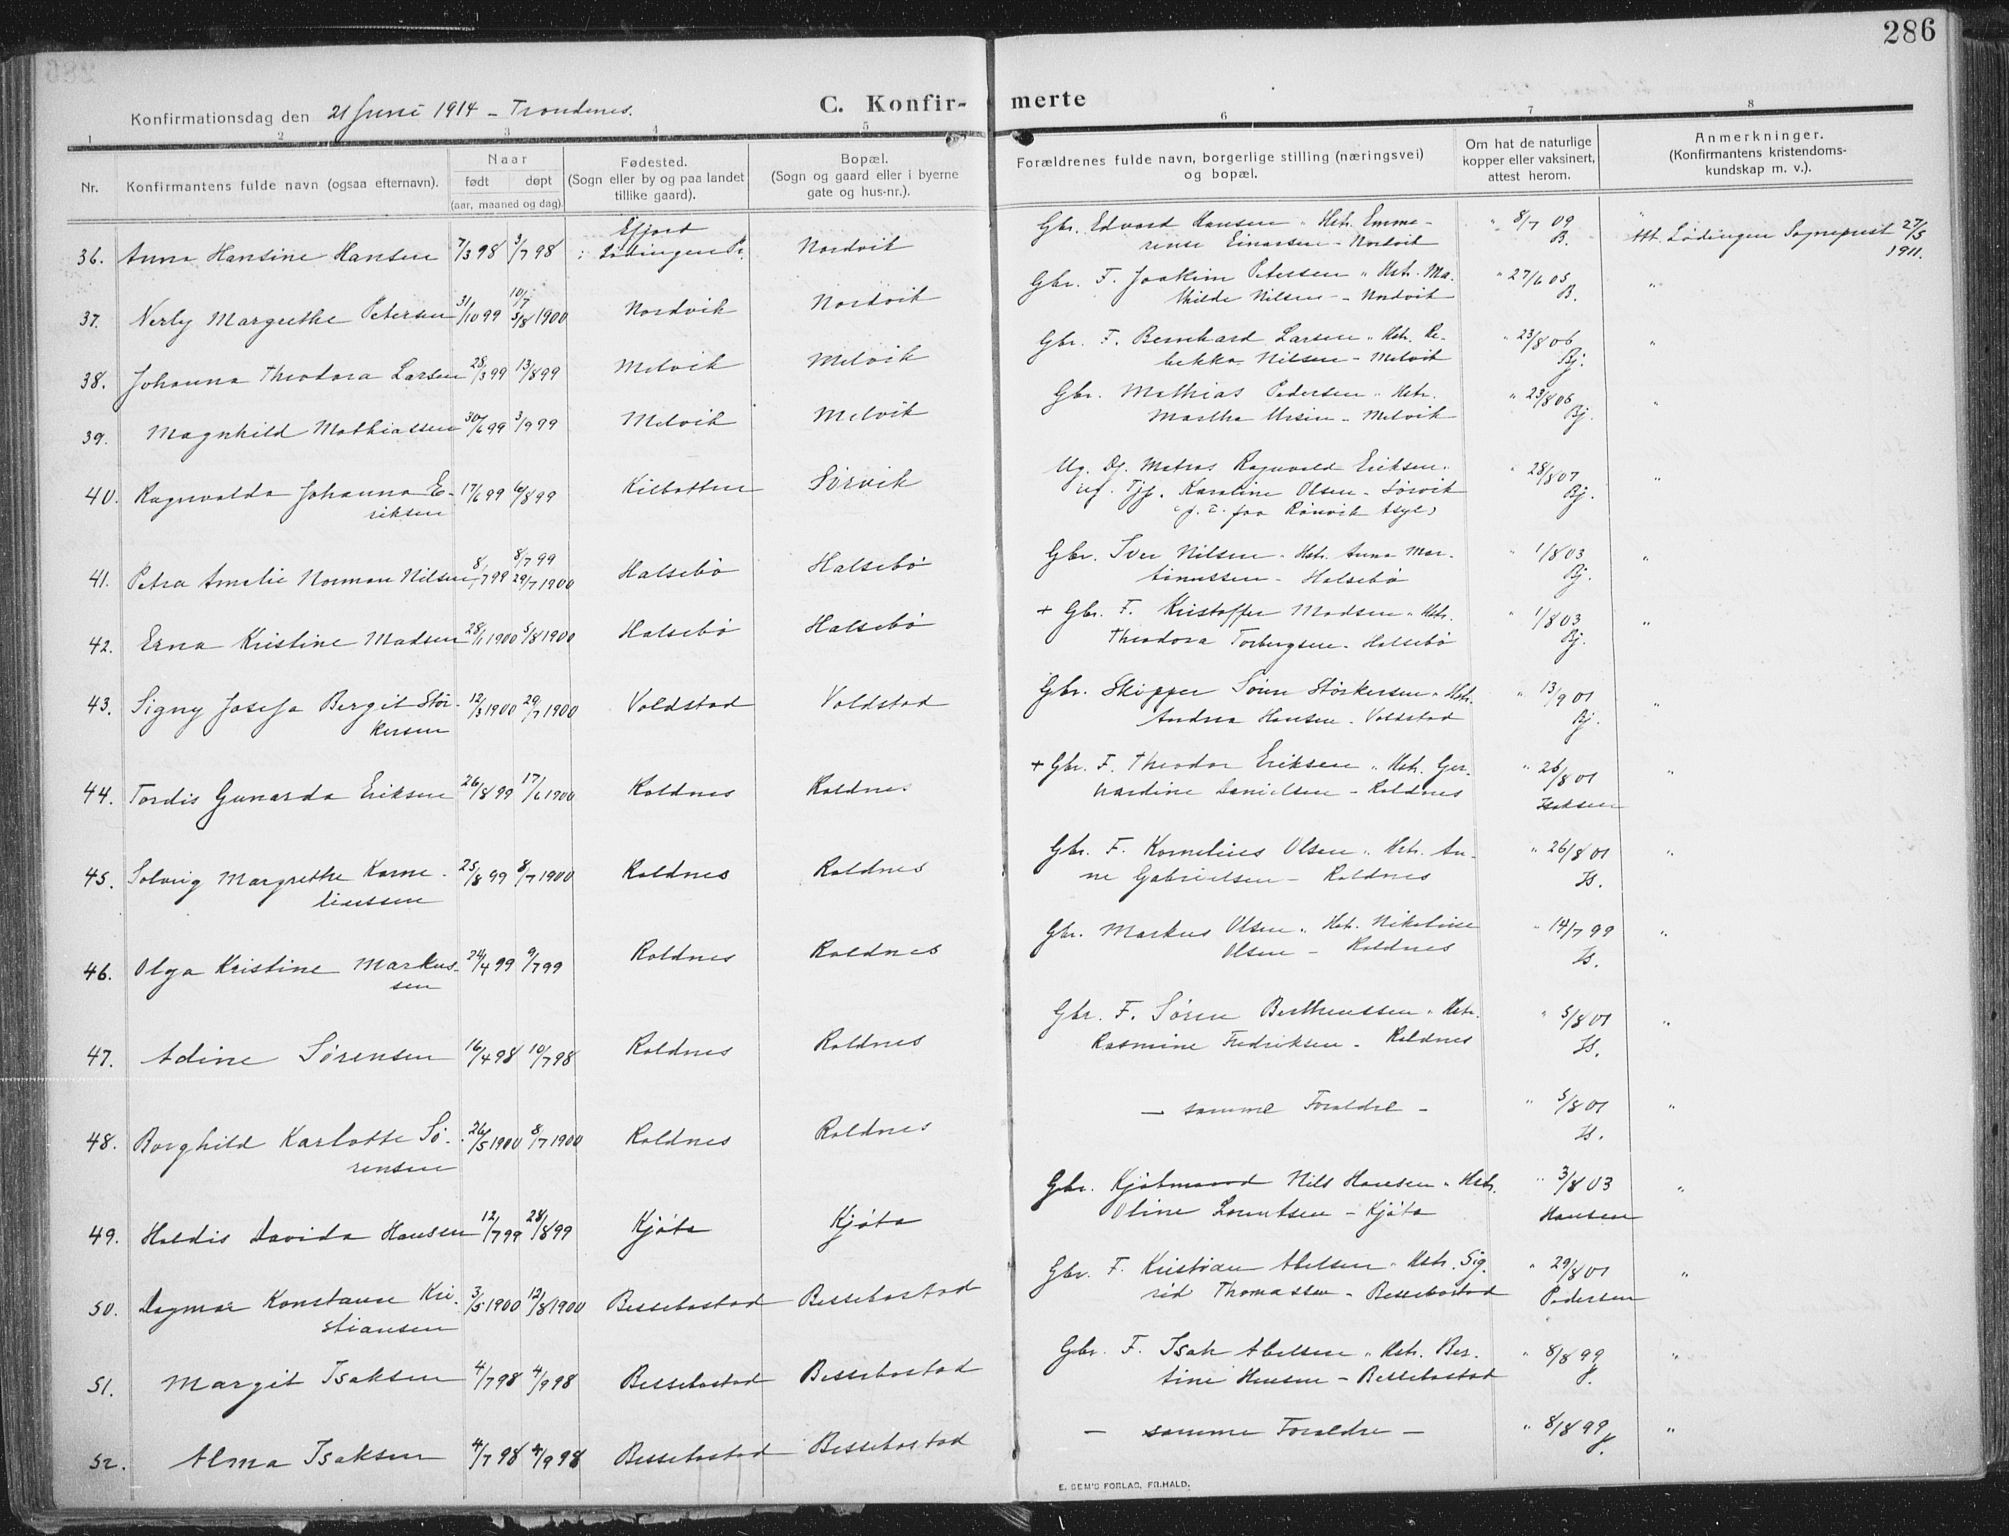 286
Konfirmationsdag den 21 Juni 1914 – Trondenes.
C. Konfir- merte
1 2 3 4 5 6 7 8
Nr.
Konfirmantens fulde navn (ogsaa efternavn).
Naar
født døpt
(aar, maaned og dag).
Fødested.
(Sogn eller by og paa landet
tillike gaard).
Bopæl.
(Sogn og gaard eller i byerne
gate og hus-nr.).
Forældrenes fulde navn, borgerlige stilling (næringsvei)
og bopæl.
Om hat de naturlige
kopper eller vaksinert,
attest herom.
Anmerkninger.
(Konfirmantens kristendoms-
kundskap m. v.).
36. Anna Hansine Hansen 7/3 98 3/7 98 Efjord
Lødingen Pr. Nordvik
Gbr. Edvard Hansen " Hstr. Emme-
rense Einarsen – Nordvik
" 8/7 09
B.
Att. Lødingen Sogneprest 27/5
1911.
37. Nerly Margrethe Petersen 31/10 99 10/7
5/8 1900 Nordvik Nordvik
Gbr. F. Joakim Petersen " Hstr. Ma-
thilde Nilsen – Nordvik
" 27/6 05
B. "
38. Johanna Theodora Larsen 28/3 99 13/8 99 Melvik Melvik
Gbr. F. Bernhard Larsen " Hstr. Re-
bekka Nilsen – Melvik
" 23/8 06
Bj. "
39. Magnhild Mathiassen 30/6 99 3/9 99 Melvik Melvik
Gbr. Mathias Pedersen " Hstr.
Martha Ursin – Melvik
" 23/8 06
Bj. "
40. Ragnvalda Johanna E-
riksen 17/6 99 6/8 99 Kilbotten Sørvik
Ug. Dj. Matros Ragnvald Eriksen.
ug. Tjp. Karoline Olsen – Sørvik
(p. t. paa Rønvik Asyl)
" 28/8 07
Bj. "
41. Petra Amalie Norman Nilsen 8/7 99 8/7 99
29/7 1900 Halsebø Halsebø
Gbr. Iver Nilsen " Hstr. Anna Mar-
tinussen – Halsebø
" 1/8 03
Bj. "
42. Erna Kristine Madsen 28/1 1900 5/8 1900 Halsebø Halsebø
+ Gbr. F. Kristoffer Madsen " Hstr.
Theodora Torbergsen – Halsebø
" 1/8 03
Bj. "
43. Signy Josefa Bergit Stør-
kersen 12/3 1900 29/7 1900 Voldstad Voldstad
Gbr. Skipper Søren Størkersen " Hstr.
Andrea Hansen – Voldstad
" 13/9 01
Bj. "
44. Tordis Gunarda Eriksen 26/8 99 17/6 1900 Roldnes Roldnes
+ Gbr. F. Theodor Eriksen " Hstr. Ger-
hardine Danielsen – Roldnes
" 26/8 01
Isaksen "
45. Solveig Margrethe Korne-
liussen 25/8 99 8/7 1900 Roldnes Roldnes
Gbr. F. Kornelius Olsen " Hstr. An-
ne Gabrielsen – Roldnes
" 26/8 01
Is. "
46. Olga Kristine Markus-
sen 24/4 99 9/7 99 Roldnes Roldnes
Gbr. Markus Olsen " Hstr. Nikoline
Olsen – Roldnes
" 14/7 99
Is. "
47. Adine Sørensen 16/4 98 10/7 98 Roldnes Roldnes
Gbr. F. Søren Bertheussen " Hstr.
Rasmine Fredriksen – Roldnes
" 5/8 01
Is. "
48. Borghild Karlotte Sø-
rensen 26/5 1900 8/7 1900 Roldnes Roldnes
– samme Foræeldre –
" 5/8 01
Is. "
49. Haldis Davida Hansen 12/7 99 28/8 99 Kjøta Kjøta
Gbr. Kjøbmand Nils Hansen " Hstr.
Oline Lorentsen – Kjøta
" 3/8 03
Hansen "
50. Dagmar Konstanse Kri-
stiansen 3/5 1900 12/8 1900 Bessebostad Bessebostad
Gbr. F. Kristian Abelsen " Hstr. Sig-
rid Thomassen – Bessebostad
" 29/8 01
Pedersen "
51. Margit Isaksen 4/7 98 4/9 98 Bessebostad Bessebostad
Gbr. F. Isak Abelsen " Hstr. Ber-
tine Hansen – Bessebostad
" 8/8 99 "
52. Alma Isaksen 4/7 98 4/9 98 Bessebostad Bessebostad
– samme Forældre –
" 8/8 99 "
E. SEM'S FORLAG, FR.HALD.